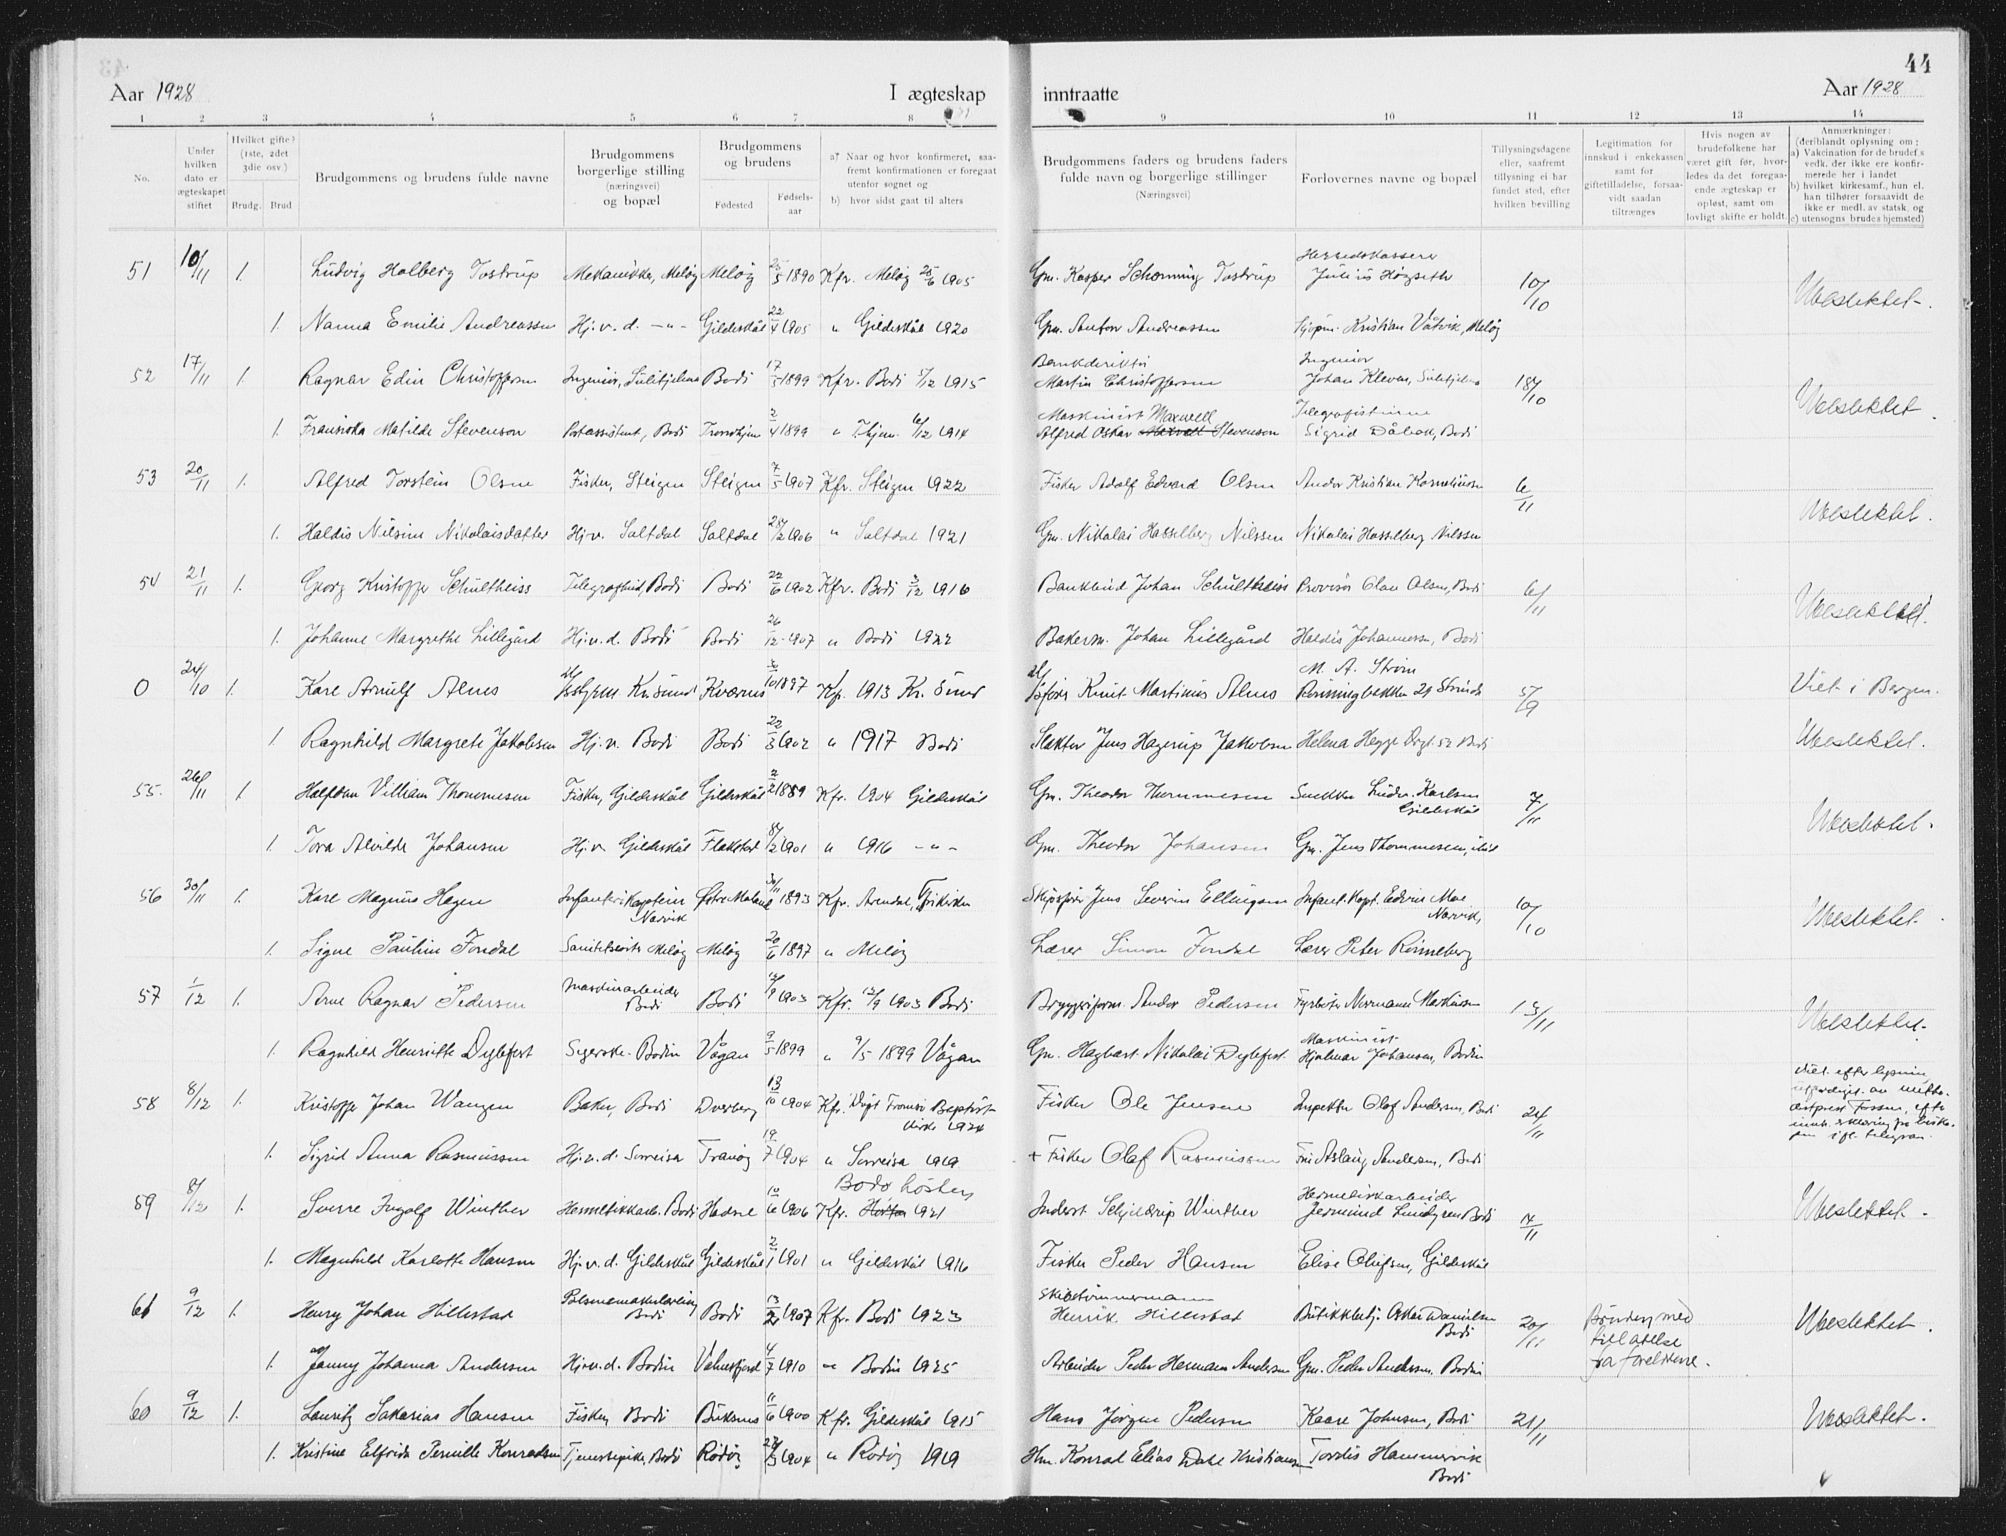 44
Aar 1928 I ægteskap inntraatte Aar 1928
1 2 3 4 5 6 7 8 9 10 11 12 13 14
No.
Under hvilken dato er ægteskapet stiftet
Hvilket gifte? (1ste, 2det 3die osv.)
Brudg. Brud
Brudgommens og brudens fulde navne
Brudgommens borgerlige stilling (næringsvei) og bopæl
Brudgommens og brudens
Fødested Fødsels-aar
a) Naar og hvor konfirmeret, saafremt konfirmationen er foregaat utenfor sognet og
b) hvor sidst gaat til alters
Brudgommens faders og brudens faders fulde navn og borgerlige stillinger (Næringsvei)
Forlovernes navne og bopæl
Tillysningsdagene eller, saafremt tillysning ei har fundet sted, efter hvilken bevilling
Legitimation for innskud i enkekassen samt for giftetilladelse, forsaavidt saadan tiltrænges
Hvis nogen av brudefolkene har været gift før, hvorledes da det foregaaende ægteskap er opløst, samt om lovligt skifte er holdt.
Anmærkninger: (deriblandt oplysning om; a) Vakcination for de brudef.s vedk. der ikke ere konfirmerede her i landet b) hvilket kirkesamf., hun el. han tilhører forsaavidt de ikke er medl. av statsk. og c) utensogns brudes hjemsted)
51 10/11 1. Ludvig Holberg Tostrup Mekaniker, Meløy Meløy 25/5 1890 Kfr. Meløy 25/6 1905 Gm. Kasper Schønning Tostrup Herredskasserer Julius Høgseth 10/10 Ubeslektet.
1. Nanna Emilie Andreassen Hj.v.d. -"- Gildeskål 22/4 1905 " Gildeskål 1920 Gm. Anton Andreassen Kjøpm. Kristian Våtvik, Meløy
52 17/11 1. Ragnar Edin Christoffersen Ingeniør, Sulitjelma Bodø 17/5 1899 Kfr. Bodø 5/12 1915 Bankdirektør Martin Christoffersen Ingeniør Johan Kleven, Sulitjelma 18/10 Ubeslektet.
1. Fransiska Matilde Stevenson Postassistent, Bodø Trondhjem 2/4 1899 " T.hjem 6/12 1914 Maskinist Maxwell Alfred Oskar Stevenson Telegrafistinne Sigrid Dåbak, Bodø
53 20/11 1. Alfred Torstein Olsen Fisker, Steigen Steigen 7/5 1907 Kfr. Steigen 1922 Fisker Adolf Edvard Olsen Andor Kristian Korneliussen 6/11 Ubeslektet.
1. Haldis Nilsine Nikolaisdatter Hj.v. Saltdal Saltdal 28/2 1906 " Saltdal 1921 Gm. Nikolai Hasselberg Nilssen Nikolai Hasselberg Nilssen
54 21/11 1. Georg Kristoffer Schultheiss Telegrafbud, Bodø Bodø 22/6 1902 Kfr. Bodø 3/12 1916 Bankbud Johan Schultheiss Provisor Olav Olsen, Bodø 6/11 Ubeslektet.
1. Johanne Margrethe Lillegård Hj.v.d. Bodø Bodø 26/12 1907 " Bodø 1922 Bakerm. Johan Lillegård Haldis Johannessen, Bodø
0 24/10 1. Kare Arnulf Alnes Kr.sund Kværnes 3/10 1897 Kfr. 1913 Kr. Sund Knut Martinus Alnes M. A. Strøm Rønningbakken 29 Strinda 5/9 Viet i Bergen.
1. Ragnhild Margrete Jakobsen Hj.v. Bodø Bodø 22/3 1902 " 1917 Bodø Slakter Jens Hagerup Jakobsen Helena Hegge Drgt. 52 Bodø Ubeslektet.
55. 26/11 1. Halfdan Villiam Thommesen Fisker, Gildeskål Gildeskål 2/2 1889 Kfr. 1904 Gildeskål Gm. Theodor Thommesen Snekker Karlsen Gildeskål 7/11 Ubeslektet.
1. Tora Alvilde Johansen Hj.v. Gildeskål Flakstad 8/2 1901 " 1916 -"- Gm. Theodor Johansen Gm. Jens Thommesen,
56 30/11 1. Kare Magnus Hagen Infanterikaptein Narvik Østre Moland 30/11 1893 Kfr. Arendal, Frikirken Skipsfører Jens Severin Ellingsen Infant.kapt. Edvin Moe Narvik, 10/10 Ubeslektet.
1. Signe Pauline Fondal Meløy Meløy 20/6 1897 " Meløy Lærer Simon Fondal Lærer Peter Rønneberg
57 1/12 1. Arne Ragnar Pedersen Maskinarbeider Bodø Bodø 12/9 1903 Kfr. 12/9 1903 Bodø Bryggeriform. Andor Pedersen Fyrbøter Normann Markussen 13/11 Ubeslektet.
1. Ragnhild Henriette Dybfest Bodin Vågan 9/5 1899 " 9/5 1899 Vågan Gm. Hagbart Nikolai Dybfest Maskinist Hjalmar Johansen, Bodin
58 8/12 1. Kristoffer Johan Wangen Baker, Bodø Dverberg 13/10 1904 Kfr. Døpt Tromsø Baptistkirke 1924 Fisker Ole Jensen Inspektør Olaf Andersen, Bodø 24/11 Viet efter lysning av metodistprest Fossum, efter
1. Sigrid Anna Rasmussen Hj.v.d. Sørreisa Tranøy 19/7 1904 " Sørreisa 1919 + Fisker Olaf Rasmussen Frk. Aslaug Andersen, Bodø
59 8/12 1. Sverre Ingolf Winther Hermetikkarb. Bodø Hadsel 10/6 1906 Kfr. Bodø høsten 1921 Inderst Schjelderup Winther Hermetikkarbeider Jermund Lindgren Bodø 14/11 Ubeslektet.
1. Magnhild Karlotte Hansen Hj.v.d. Gildeskål Gildeskål 2/1 1901 " Gildeskål 1916 Fisker Peder Hansen Elise Olufsen, Gildeskål
61 9/12 1. Henry Johan Hillestad Pølsemakerlærling Bodø Bodø 13/2 1907 Kfr. Bodø 1923 Skibstømmermann Henrik Hillestad Butikkbetj. Oskar Danielsen Bodø 20/11 Bruden med tillatelse fra foreldrene. Ubeslektet.
1. Jenny Johanna Andersen Hj.v.d. Bodin Valnesfjord 4/7 1910 " Bodin 1925 Arbeider Peder Hermann Andersen Gm. Peder Andersen, Bodin
60 9/12 1. Lauritz Sakarias Hansen Fisker, Bodø Buksnes 11/6 1900 Kfr. Gildeskål 1915 Hans Jørgen Pedersen Kaare Johnsen, Bodø 21/11 Ubeslektet.
1. Kristine Elfrida Pernille Konradsen Tjenestepike, Bodø Rødøy 27/3 1904 " Rødøy 1919 Hm. Konrad Elias Dahl Kristiansen Tordis Hammervik Bodø